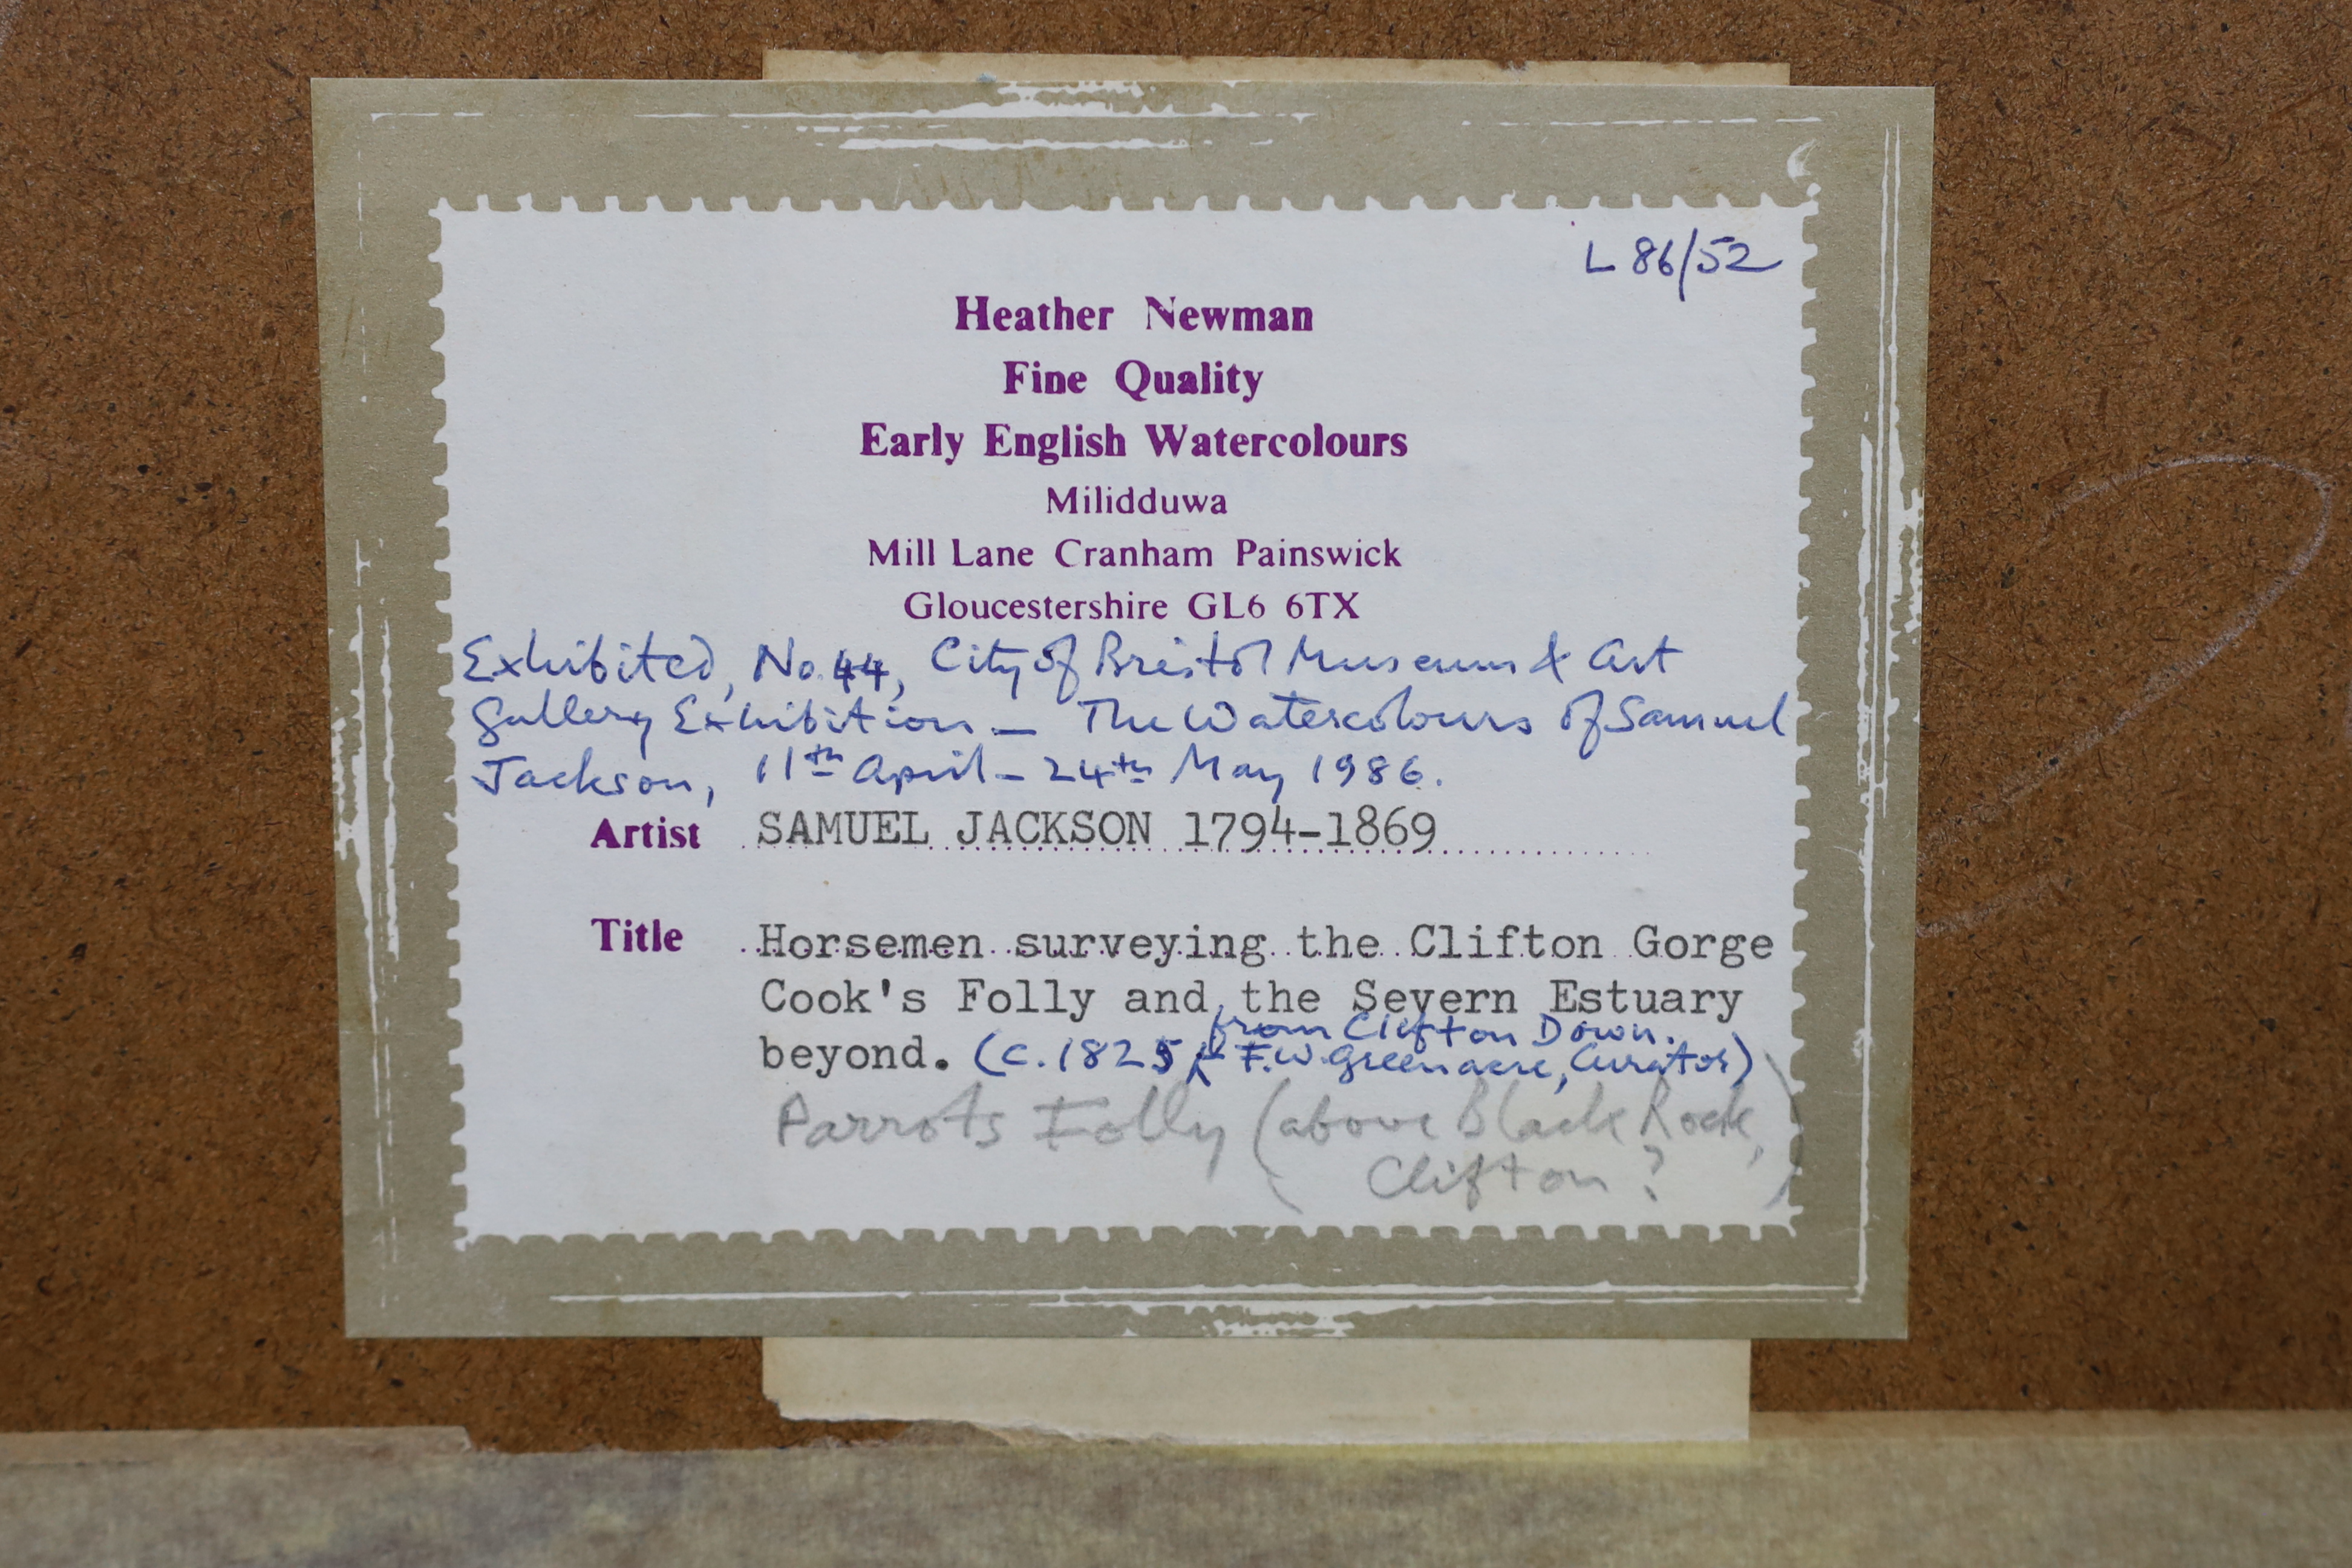 L 86/52
Heather Newman
Fine Quality
Early English Watercolours
Milidduwa
Mill Lane Cranham Painswick
Gloucestershire GL6 6TX
Exhibited, No. 44, City of Bristol Museum & Art
Gallery Exhibition – The Watercolours of Samuel
Jackson, 11th April – 24th May 1986.
Artist SAMUEL JACKSON 1794-1869
Title Horsemen surveying the Clifton Gorge
Cook's Folly and the Severn Estuary
from Clifton Down.
beyond. (c. 1825 F.W. Greenacre, Curator)
Parrots Folly (above Black Rock,
Clifton?)